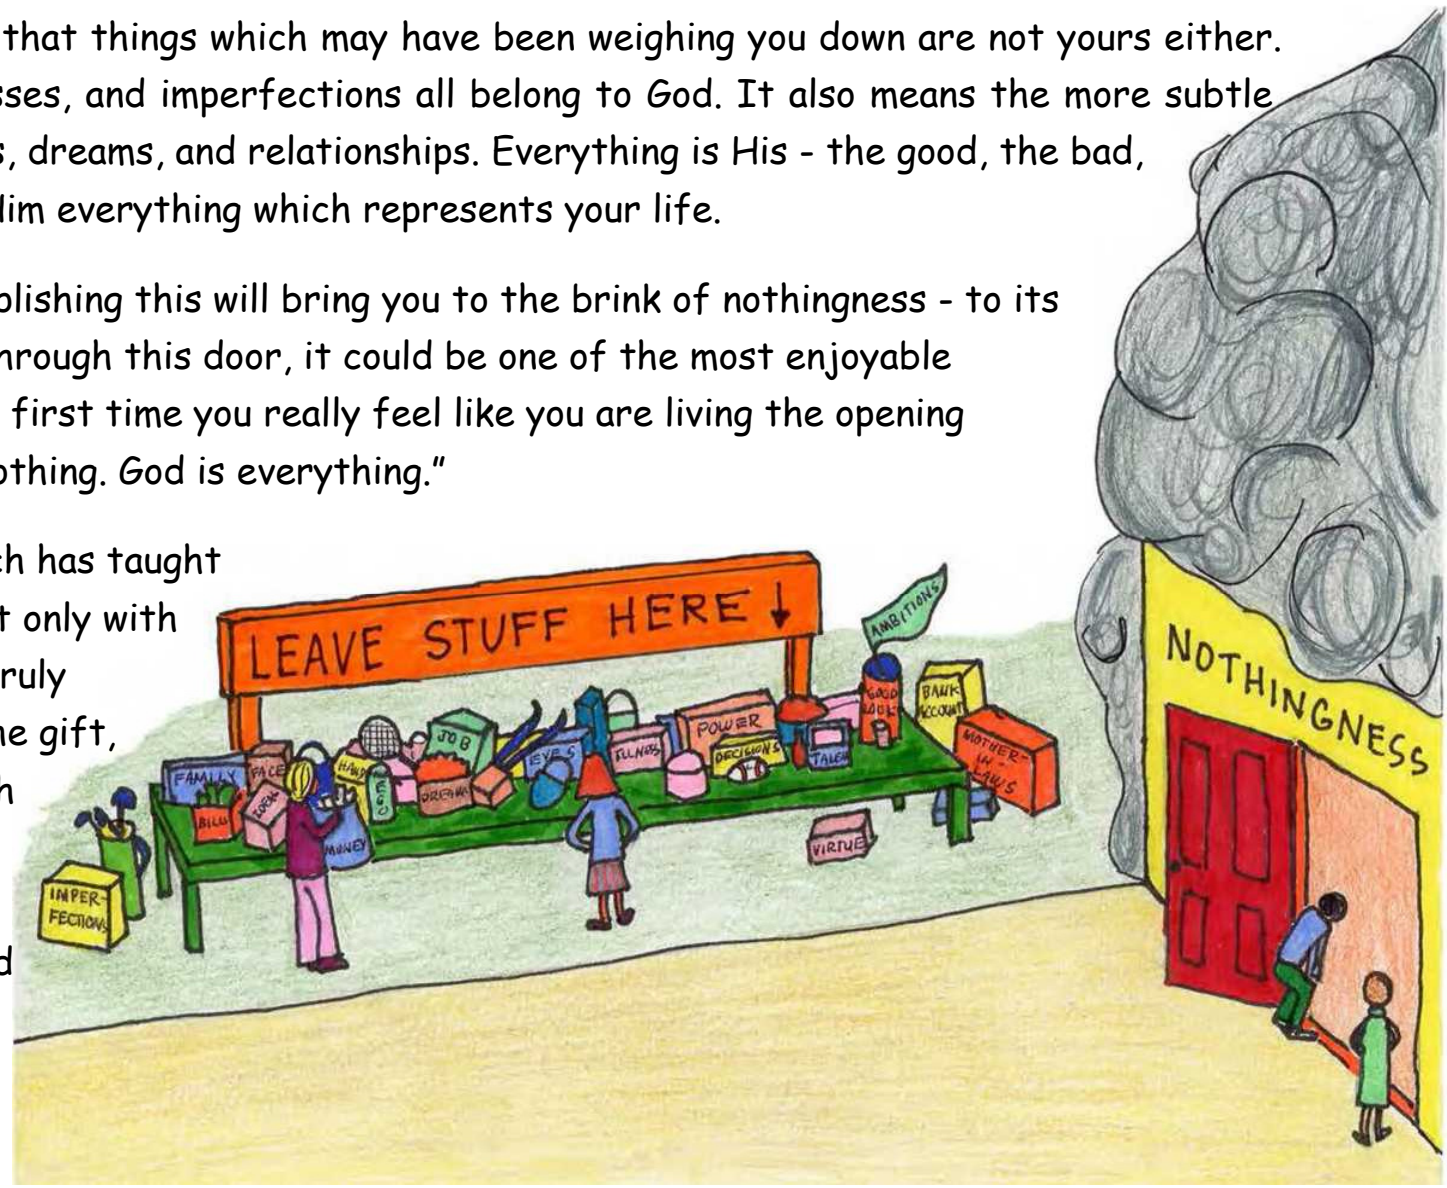 that things which may have been weighing you down are not yours either.
sses, and imperfections all belong to God. It also means the more subtle
s, dreams, and relationships. Everything is His - the good, the bad,
Him everything which represents your life.
plishing this will bring you to the brink of nothingness - to its
hrough this door, it could be one of the most enjoyable
first time you really feel like you are living the opening
othing. God is everything."
ch has taught
t only with
ruly
he gift,
h
d
LEAVE STUFF HERE ↓
AMBITIONS
GOOD
LOOKS
BANK
ACCOUNT
MOTHER-
IN-
LAWS
JOB
POWER
DECISIONS
TALENT
EYES
ILLNESS
FAMILY
FACE
HAND
EGO
DREAMS
BILLS
MONEY
VIRTUE
IMPER-
FECTIONS
NOTHINGNESS